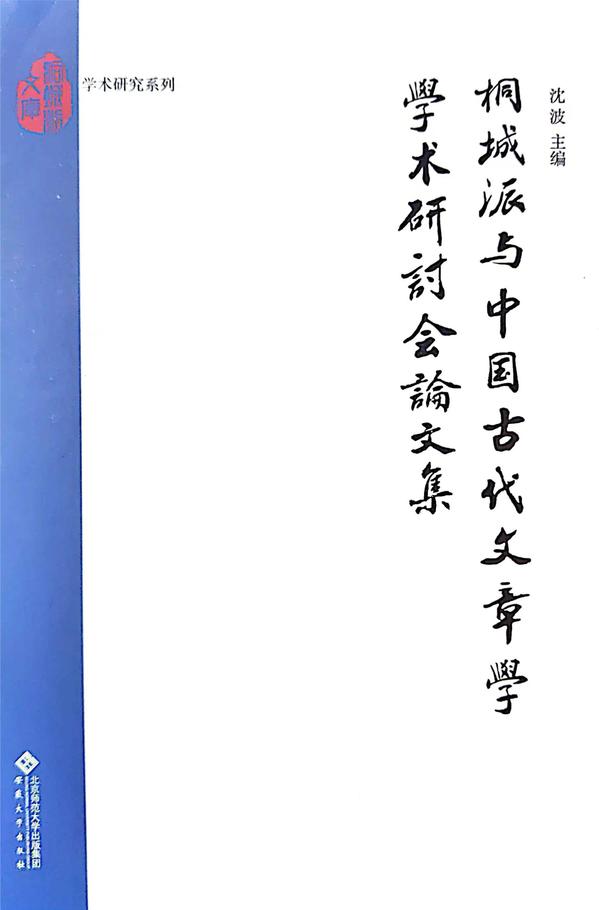 学术研究系列
沈波 主编
桐城派与中国古代文章學
學术研討会論文集
桐城派
文库
北京师范大学出版集团
安徽大学出版社